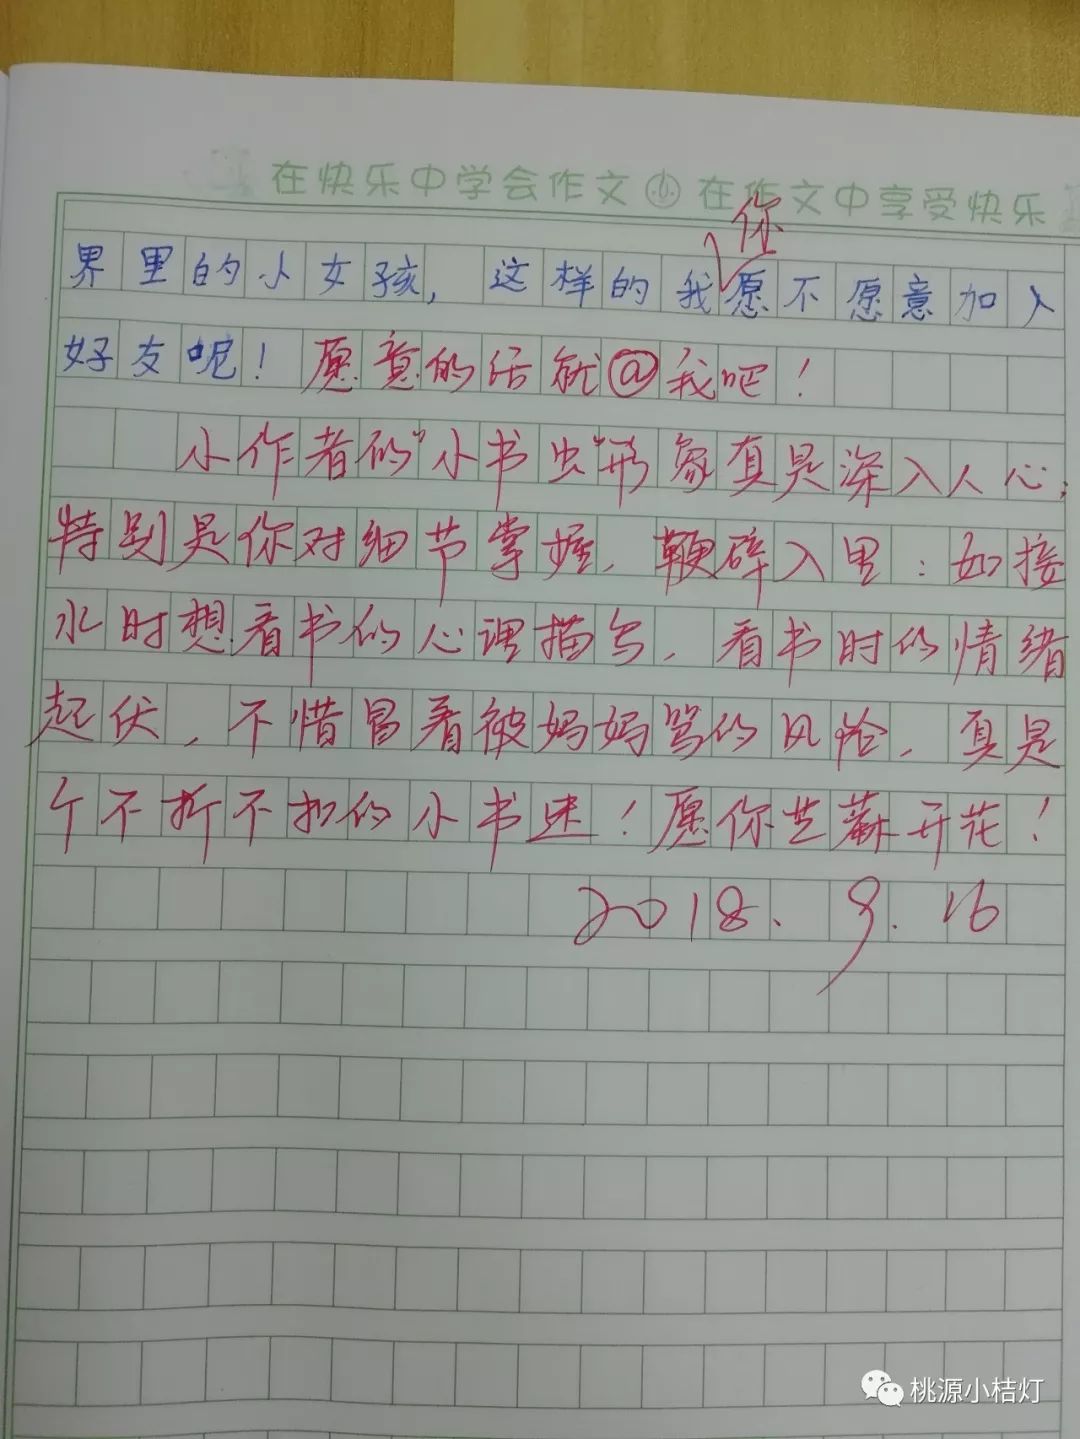 在快乐中学会作文 在作文中享受快乐
你
界里的小女孩，这样的我愿不愿意加入
好友呢！愿意的话就@我吧！
小作者的“小书虫”形象真是深入人心；
特别是你对细节掌握，鞭辟入里：如接
水时想看书的心理描写，看书时的情绪
起伏，不惜冒着被妈妈骂的风险，真是
个不折不扣的小书迷！愿你芝麻开花！
2018.9.16
桃源小桔灯